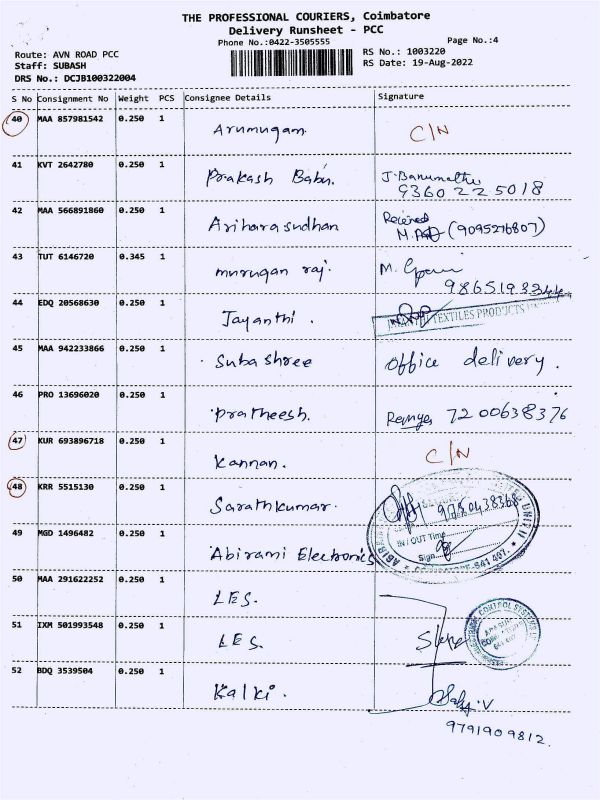 THE PROFESSIONAL COURIERS, Coimbatore
Delivery Runsheet - PCC
Phone No.:0422-3505555 Page No.:4
Route: AVN ROAD PCC RS No.: 1003220
Staff: SUBASH RS Date: 19-Aug-2022
DRS No.: DCJB100322004
S No Consignment No Weight PCS Consignee Details Signature
40 MAA 857981542 0.250 1 Arumugam. C/N
41 KVT 2642780 0.250 1 Prakash Babu. J. Banumathi
9360225018
42 MAA 566891860 0.250 1 Ariharasudhan Received
(9095276807)
43 TUT 6146720 0.345 1 murugan raj. M.
44 EDQ 20568630 0.250 1 Jayanthi. TEXTILES PRODUCTS
45 MAA 942233866 0.250 1 Subashree office delivery.
46 PRO 13696020 0.250 1 Pratheesh. 7200638376
47 KUR 693896718 0.250 1 Kannan. C/N
48 KRR 5515130 0.250 1 Sarathkumar.
IN / OUT Time
49 MGD 1496482 0.250 1 Abirami Electronics Sign
50 MAA 291622252 0.250 1 LES.
51 IXM 501993548 0.250 1 LES.
CONTROL SYSTEMS
52 BDQ 3539504 0.250 1 Kalki.
9791909812.